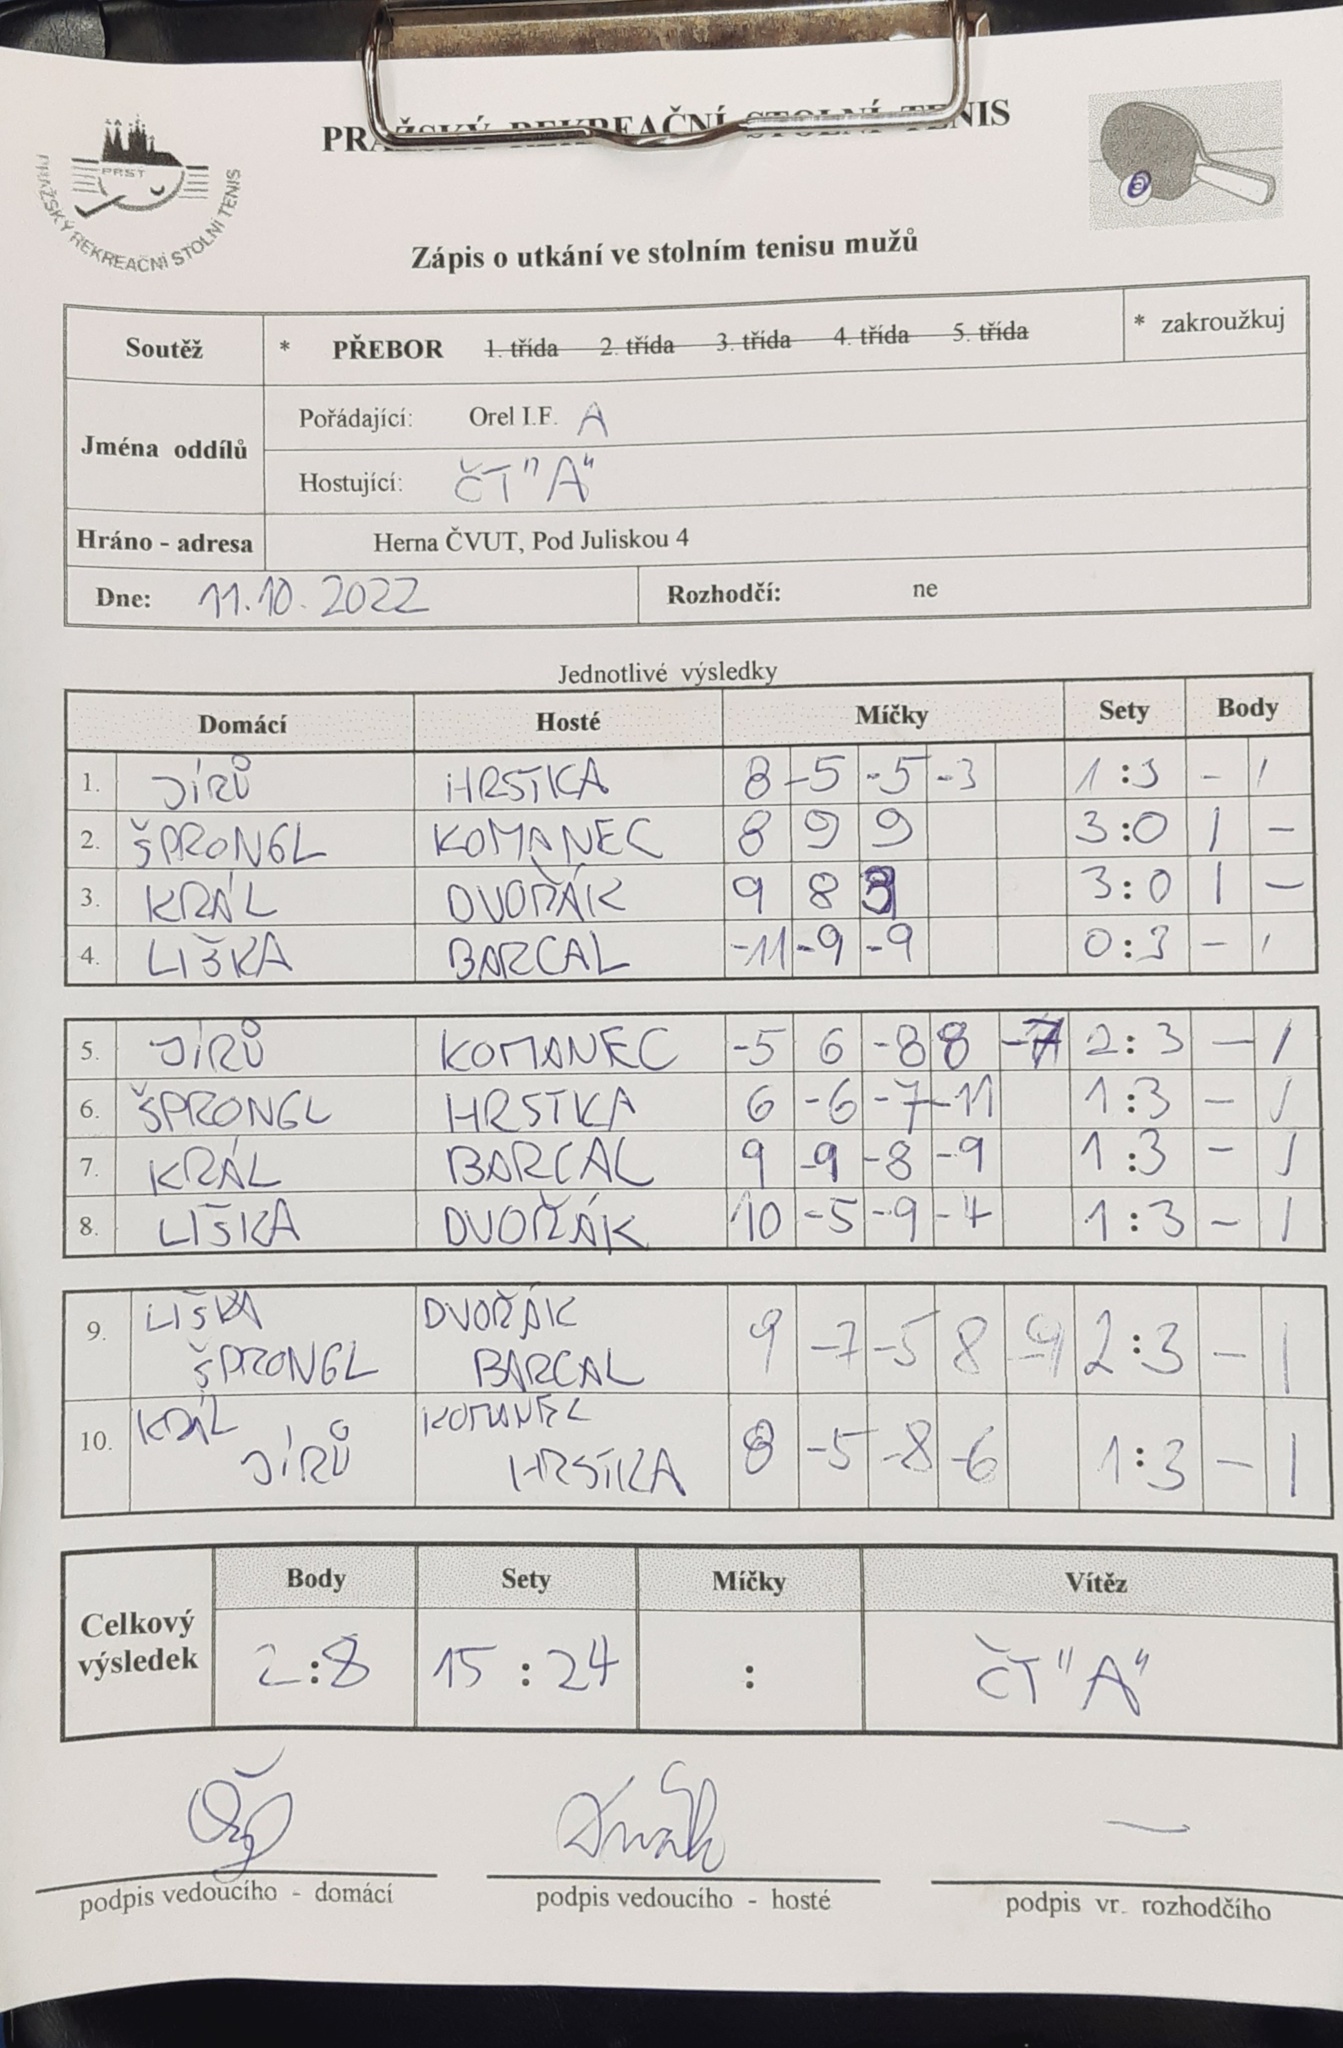 PRAŽSKÝ REKREAČNÍ STOLNÍ TENIS
PRST
PRAŽSKÝ REKREAČNÍ STOLNÍ TENIS
Zápis o utkání ve stolním tenisu mužů
Soutěž * PŘEBOR 1. třída 2. třída 3. třída 4. třída 5. třída * zakroužkuj
Jména oddílů
Pořádající: Orel I.F. A
Hostující: ČT "A"
Hráno - adresa Herna ČVUT, Pod Juliskou 4
Dne: 11.10.2022 Rozhodčí: ne
Jednotlivé výsledky
Domácí Hosté Míčky Sety Body
1. JÍRŮ HRSTKA 8 -5 -5 -3 1:3 - 1
2. ŠPRONGL KOMANEC 8 9 9 3:0 1 -
3. KRÁL DVOŘÁK 9 8 3:0 1 -
4. LIŠKA BARCAL -11 -9 -9 0:3 - 1
5. JÍRŮ KOMANEC -5 6 -8 8 -7 2:3 - 1
6. ŠPRONGL HRSTKA 6 -6 -7 -11 1:3 - 1
7. KRÁL BARCAL 9 -9 -8 -9 1:3 - 1
8. LIŠKA DVOŘÁK 10 -5 -9 -4 1:3 - 1
9. LIŠKA DVOŘÁK 9 -7 -5 8 -9 2:3 - 1
ŠPRONGL BARCAL
10. KRÁL KOMANEC 8 -5 -8 -6 1:3 - 1
JÍRŮ HRSTKA
Celkový výsledek
Body Sety Míčky Vítěz
2:8 15:24 : ČT "A"
podpis vedoucího - domácí podpis vedoucího - hosté podpis vr. rozhodčího